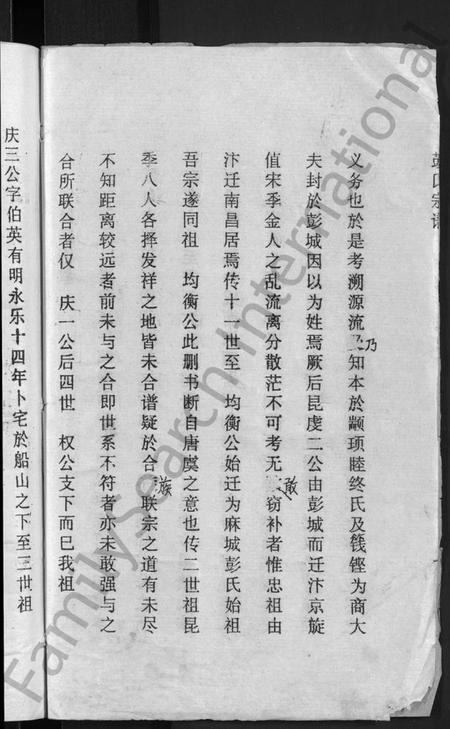 彭氏宗谱
义务也於是考溯源流乃知本於颛顼睦终氏及篯铿为商大
夫封於彭城因以为姓焉厥后昆虔二公由彭城而迁汴京旋
值宋季金人之乱流离分散茫不可考无敢窃补者惟忠祖由
汴迁南昌居焉传十一世至 均衡公始迁为麻城彭氏始祖
吾宗遂同祖 均衡公此删书断自唐虞之意也传二世祖昆
季八人各择发祥之地皆未合谱疑於合族联宗之道有未尽
不知距离较远者前未与之合即世系不符者亦未敢强与之
合所联合者仅 庆一公后四世 权公支下而已我祖
庆三公字伯英有明永乐十四年卜宅於船山之下至三世祖
FamilySearch International